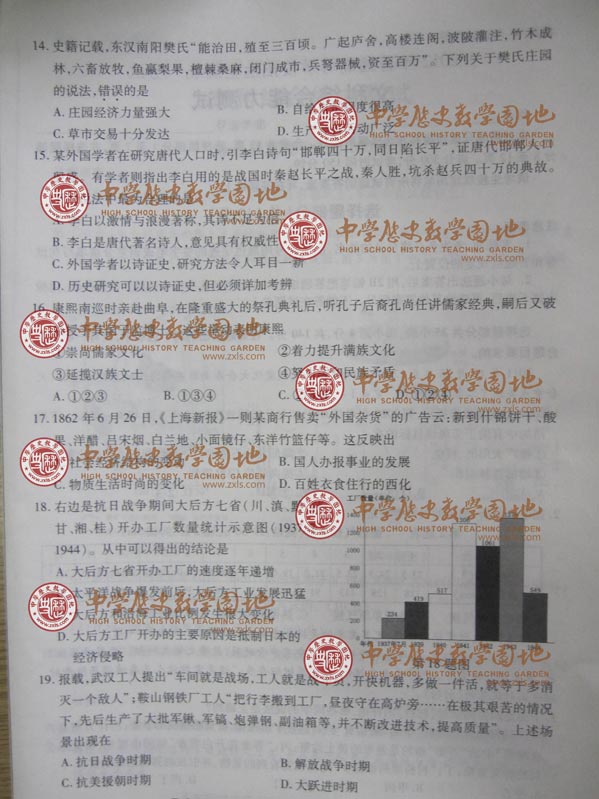 14. 史籍记载,东汉南阳樊氏“能治田,殖至三百顷。广起庐舍,高楼连阁,波陂灌注,竹木成
林,六畜放牧,鱼蠃梨果,檀棘桑麻,闭门成市,兵弩器械,资至百万”。下列关于樊氏庄园
的说法,错误的是
A. 庄园经济力量强大
B. 自给
度很高
C. 草市交易十分发达
D. 生产
动广泛
15. 某外国学者在研究唐代人口时,引李白诗句“邯郸四十万,同日陷长平”,证唐代邯郸人口
有学者则指出李白用的是战国时秦赵长平之战,秦人胜,坑杀赵兵四十万的典故。
A. 李白以激情与浪漫著称,其诗不足为信
B. 李白是唐代著名诗人,意见具有权威性
C. 外国学者以诗证史,研究方法令人耳目一新
D. 历史研究可以以诗证史,但必须详加考辨
16. 康熙南巡时亲赴曲阜,在隆重盛大的祭孔典礼后,听孔子后裔孔尚任讲儒家经典,嗣后又破
①崇尚儒家文化
②着力提升满族文化
③延揽汉族文士
④
民族矛盾
A. ①②③
B. ①③④
C.
D. ①②④
17. 1862 年 6 月 26 日,《上海新报》一则某商行售卖“外国杂货”的广告云:新到什锦饼干、酸
果、洋醋、吕宋烟、白兰地、小面镜仔、东洋竹篮仔等。这反映出
B. 国人办报事业的发展
C. 物质生活时尚的变化
D. 百姓衣食住行的西化
18. 右边是抗日战争期间大后方七省(川、滇、黔
甘、湘、桂)开办工厂数量统计示意图(193
1944)。从中可以得出的结论是
A. 大后方七省开办工厂的速度逐年递增
D. 大后方工厂开办的主要原因是抵制日本的
经济侵略
工厂数量(单位:个)
1200
1000
800
600
400
200
234
419
517
1061
549
年份
第18题图
19. 报载,武汉工人提出“车间就是战场,工人就是战
员,开快机器,多做一件活,就等于多消
灭一个敌人”;鞍山钢铁厂工人“把行李搬到工厂,昼夜守在高炉旁……在极其艰苦的情况
下,先后生产了大批军锹、军镐、炮弹钢、副油箱等,并不断改进技术,提高质量”。上述场
景出现在
A. 抗日战争时期
B. 解放战争时期
C. 抗美援朝时期
D. 大跃进时期
中学历史教学园地
HIGH SCHOOL HISTORY TEACHING GARDEN
www.zxls.com
中学历史教学园地
HIGH SCHOOL HISTORY TEACHING GARDEN
www.zxls.com
中学历史教学园地
HIGH SCHOOL HISTORY TEACHING GARDEN
www.zxls.com
中学历史教学园地
HIGH SCHOOL HISTORY TEACHING GARDEN
www.zxls.com
中学历史教学园地
HIGH SCHOOL HISTORY TEACHING GARDEN
www.zxls.com
中学历史教学园地
HIGH SCHOOL HISTORY TEACHING GARDEN
www.zxls.com
中学历史教学园地
HIGH SCHOOL HISTORY TEACHING GARDEN
www.zxls.com
中学历史教学园地
HIGH SCHOOL HISTORY TEACHING GARDEN
www.zxls.com
中学历史教学园地
HIGH SCHOOL HISTORY TEACHING GARDEN
www.zxls.com